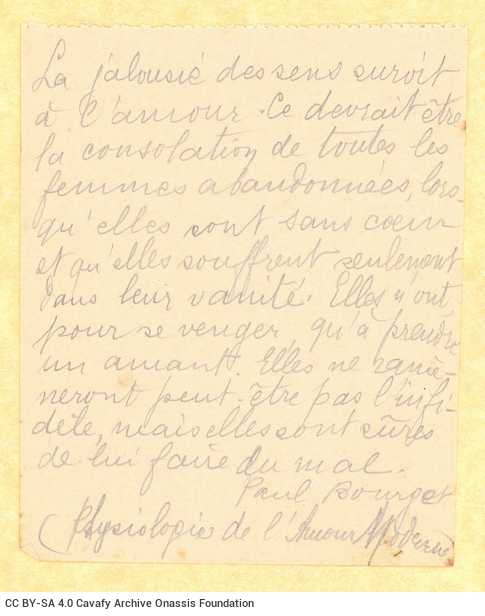 La jalousie des sens survit
à l'amour. Ce devrait être
la consolation de toutes les
femmes abandonnées, lors-
qu'elles sont sans cœur
et qu'elles souffrent seulement
dans leur vanité. Elles n'ont,
pour se venger, qu'à prendre
un amant. Elles ne ramè-
neront peut-être pas l'infi-
dèle, mais elles sont sûres
de lui faire du mal.
Paul Bourget
(Physiologie de l'Amour Moderne
CC BY-SA 4.0 Cavafy Archive Onassis Foundation